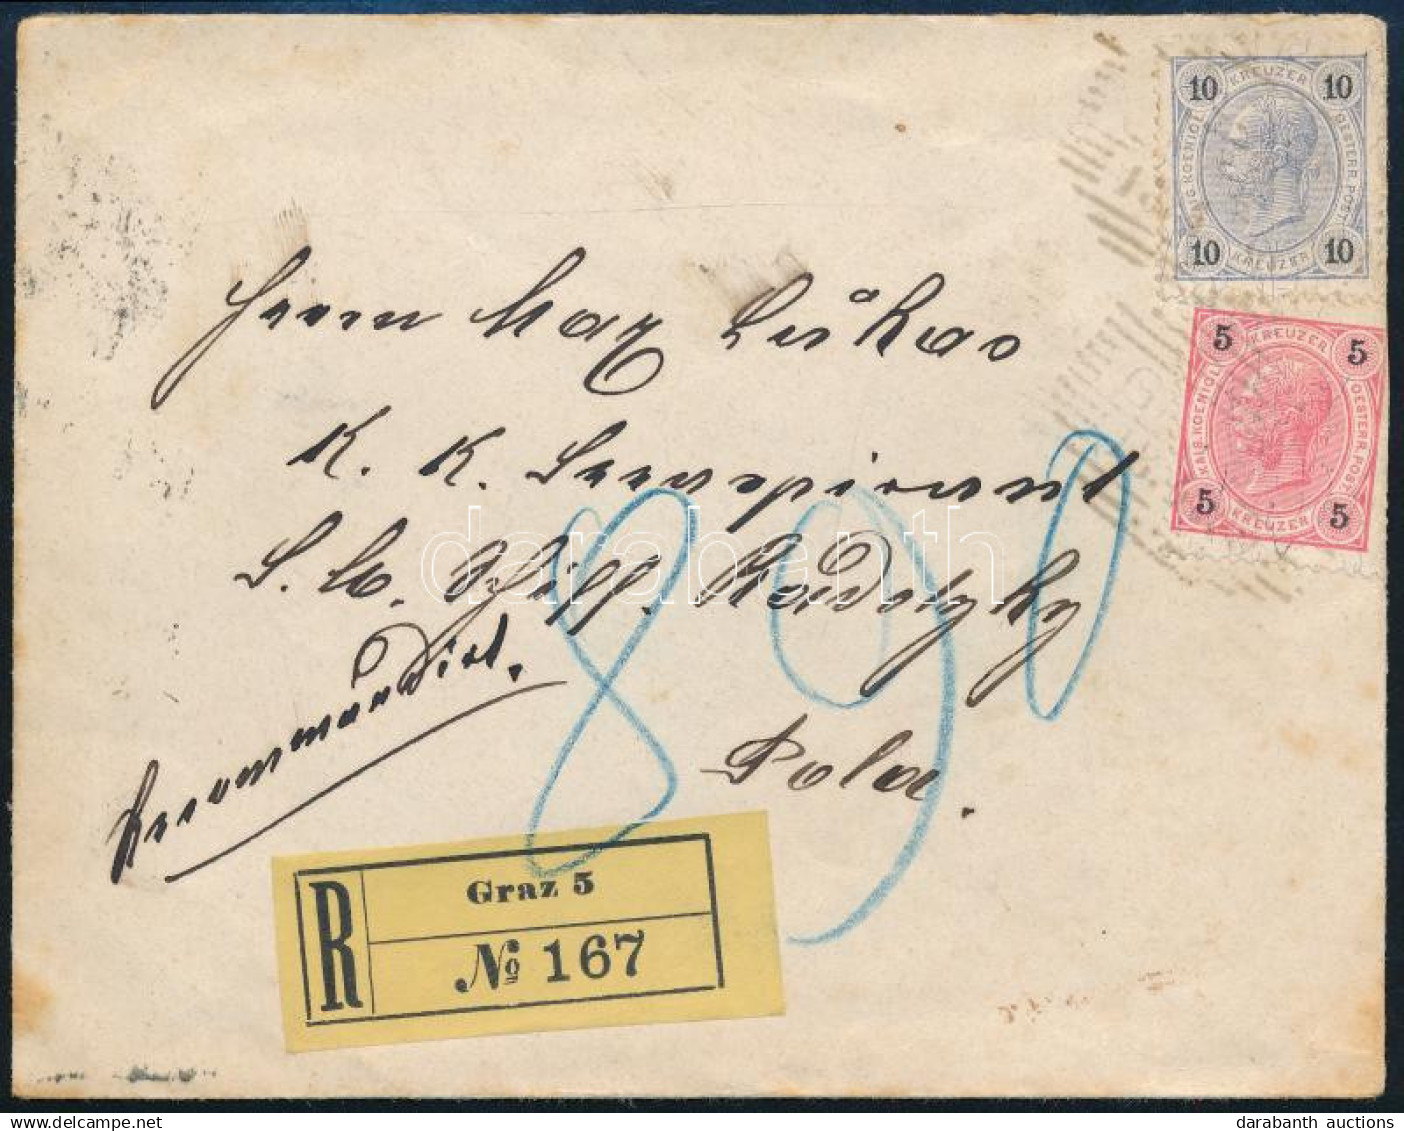 10 KREUZER 10
KAIS. KOENIGL. OESTERR. POST
10 KREUZER 10
5 KREUZER 5
KAIS. KOENIGL. OESTERR. POST
5 KREUZER 5
Herrn Max Lukas
K. K. Seeaspirant
S. M. Schiff. Radetzky
Pola.
Recommandirt.
890
darabanth
R
Graz 5
№ 167
darabanth auctions